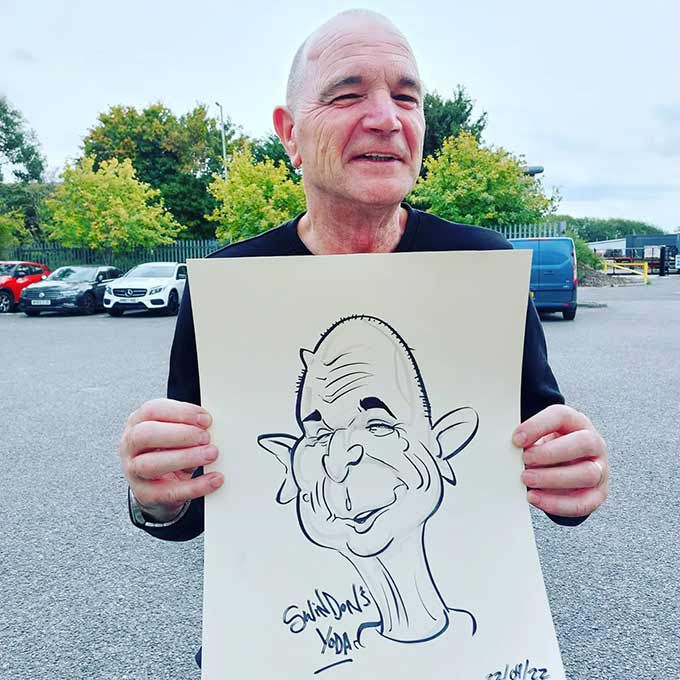 SWINDON'S
YODA
22/09/22